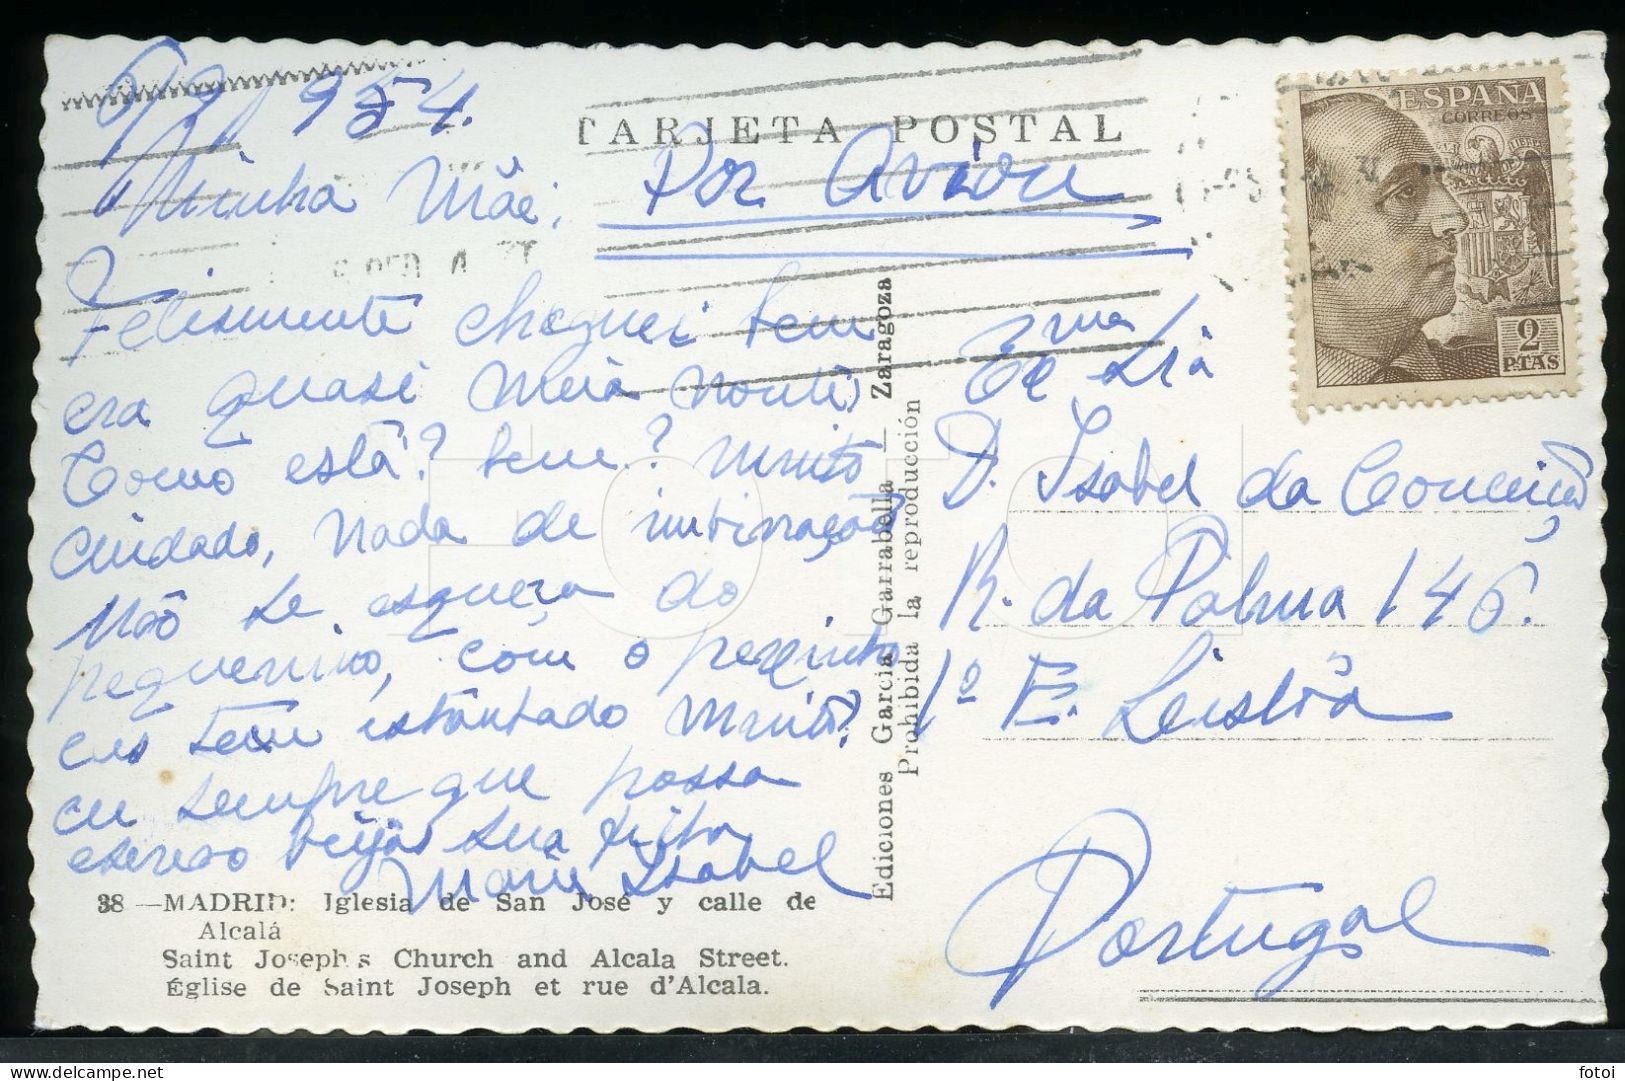 6/9/954.
TARJETA POSTAL
Por Avion
Minha Mãe,
Felismente cheguei bem
era quasi Meia Noute,
Como está? bem? Muito
Cuidado, Nada de
Não se esqueça do
pequenino, com o pezinho
tem muito?
eu sempre que possa
escrevo beijos sua filha
Maria Isabel
38 —MADRID: Iglesia de San José y calle de
Alcalá
Saint Joseph's Church and Alcala Street.
Église de Saint Joseph et rue d'Alcala.
Ediciones García Garrabella — Zaragoza
Prohibida la reproducción
ESPAÑA
CORREOS
2
PTAS
Exma Sra
D. Isabel da Conceição
R. da Palma 146.
1º E. Lisbôa
Portugal
FOTOI
fotoi